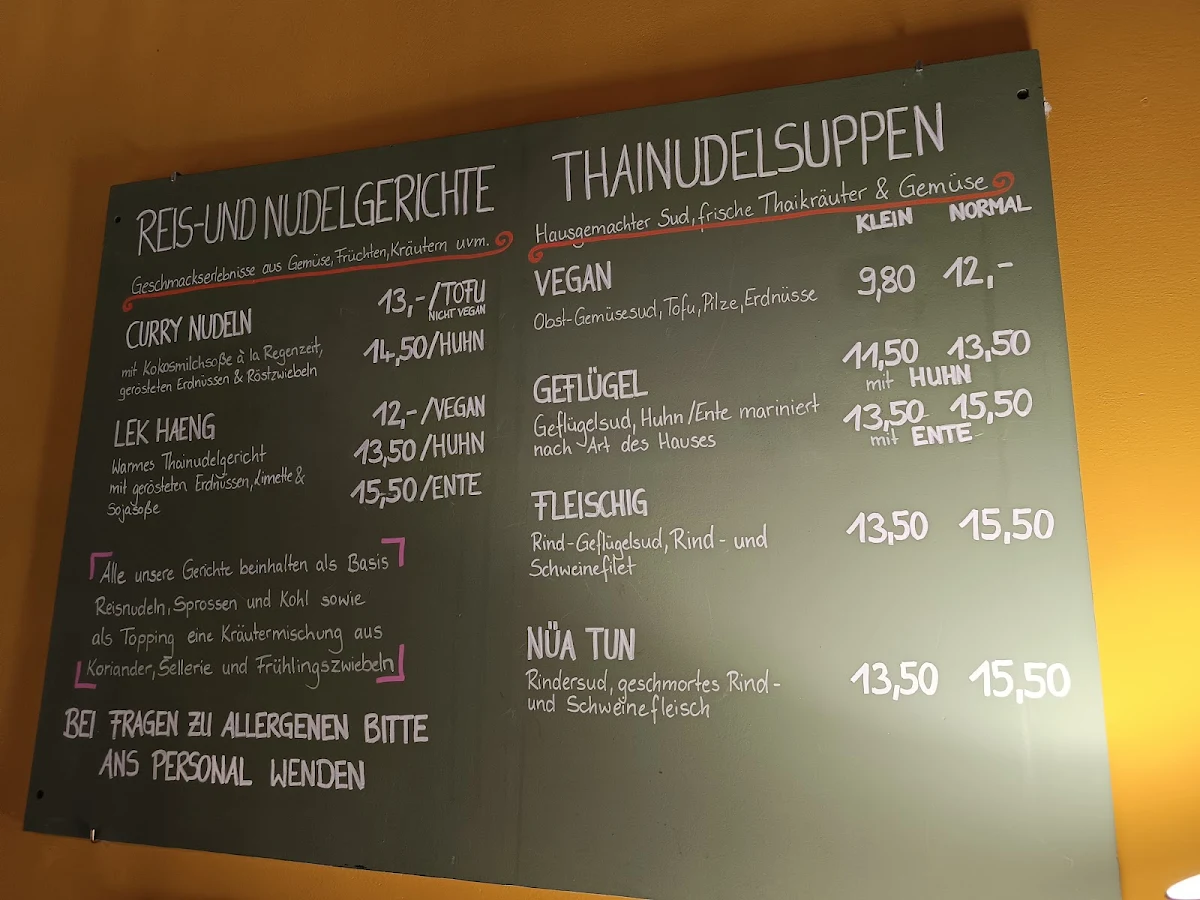 REIS-UND NUDELGERICHTE
Geschmackserlebnisse aus Gemüse, Früchten, Kräutern uvm.
CURRY NUDELN
13,-/TOFU
NICHT VEGAN
mit Kokosmilchsoße à la Regenzeit,
gerösteten Erdnüssen & Röstzwiebeln
14,50/HUHN
LEK HAENG
12,-/VEGAN
Warmes Thainudelgericht
13,50/HUHN
mit gerösteten Erdnüssen, Limette &
Sojasoße
15,50/ENTE
Alle unsere Gerichte beinhalten als Basis
Reisnudeln, Sprossen und Kohl sowie
als Topping eine Kräutermischung aus
Koriander, Sellerie und Frühlingszwiebeln
BEI FRAGEN ZU ALLERGENEN BITTE
ANS PERSONAL WENDEN
THAINUDELSUPPEN
Hausgemachter Sud, frische Thaikräuter & Gemüse
KLEIN NORMAL
VEGAN 9,80 12,-
Obst-Gemüsesud, Tofu, Pilze, Erdnüsse
11,50 13,50
GEFLÜGEL mit HUHN
Geflügelsud, Huhn/Ente mariniert 13,50 15,50
nach Art des Hauses mit ENTE
FLEISCHIG 13,50 15,50
Rind-Geflügelsud, Rind- und
Schweinefilet
NÜA TUN
Rindersud, geschmortes Rind- 13,50 15,50
und Schweinefleisch